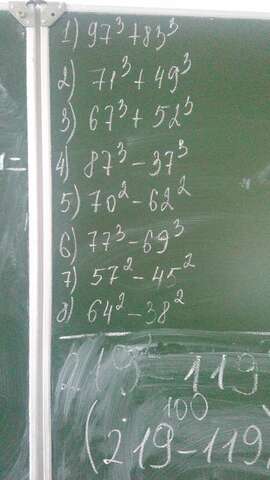 1) 97³+83³
2) 71³+49³
3) 67³+52³
4) 87³-37³
5) 70²-62²
6) 77³-69³
7) 57²-45²
8) 64²-38²
219 - 119
100
(219-119)